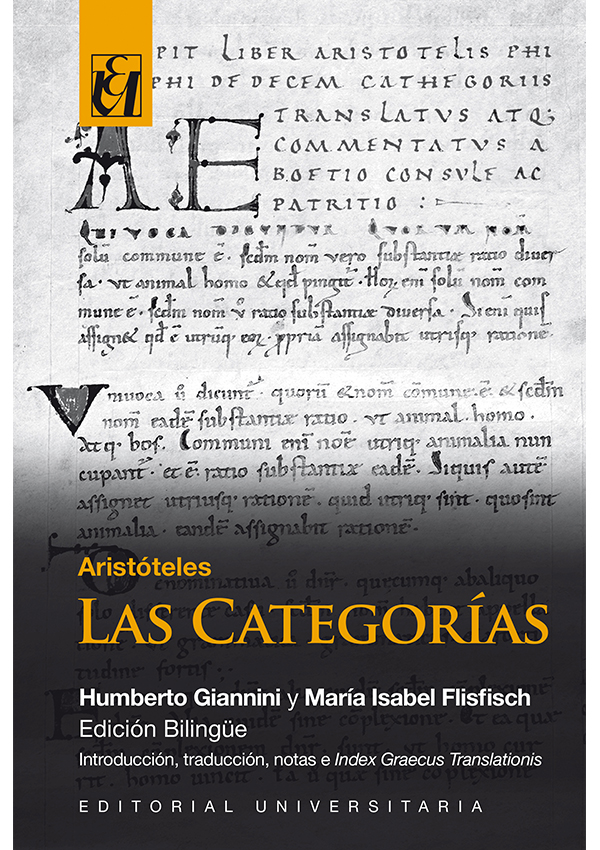 PIT LIBER ARISTOTELIS PHI
PHI DE DECEM CATHEGORIIS
TRANSLATUS ATQ;
COMMENTATUS A
BOETIO CONSULE AC
PATRITIO :
AE
QUIVOCA DICUNTUR QUORUM NOM
solū commune ē. scd̄m nom̄ vero substantiæ ratio diver
sa. ut animal homo & qd̄ pingit̄. Hor̄ enī solū nom̄ com
mune ē. scd̄m nom̄ ū ratio substantiæ diversa. Si enī quis
assign& qd̄ ē utrūq; eor̄. ppria assignabit utrisq; rationē.
Vnivoca ū dicunt̄. quorū & nom̄ cōmune ē. & scd̄m
nom̄ eadē substantiæ ratio. ut animal. homo.
atq. bos. Communi enī noē utriq; animalia nun
cupant̄. et ē ratio substantiæ eadē. Siquis autē
assignet utriusq; rationē. quid utriq; sint. quo sint
animalia. eandē assignabit rationē.
Denominativa ū dn̄r. quecumque abaliquo
Aristóteles
LAS CATEGORÍAS
Humberto Giannini y María Isabel Flisfisch
Edición Bilingüe
Introducción, traducción, notas e Index Graecus Translationis
EDITORIAL UNIVERSITARIA